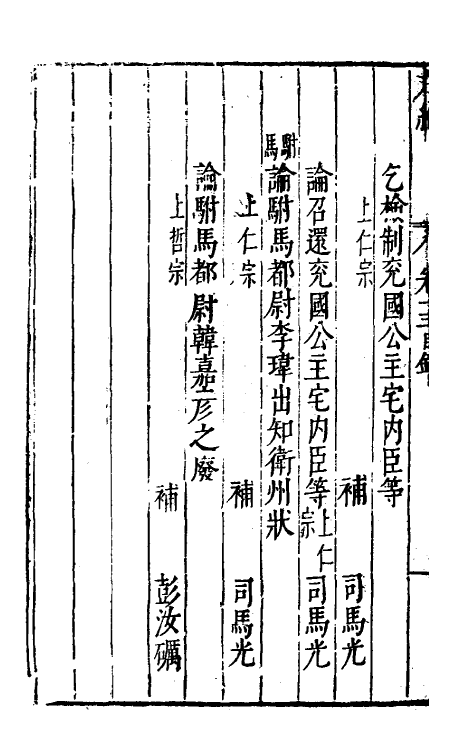 乞檢制兖國公主宅内臣等
上仁宗 補 司馬光
論召還兖國公主宅内臣等上仁宗 司馬光
駙馬
論駙馬都尉李瑋出知衛州狀
上仁宗 補 司馬光
論駙馬都尉韓嘉彦之廢
上哲宗 補 彭汝礪